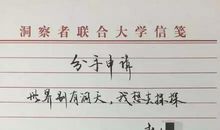 洞察者联合大学信笺
分手申请
世界别有洞天，我想去探探